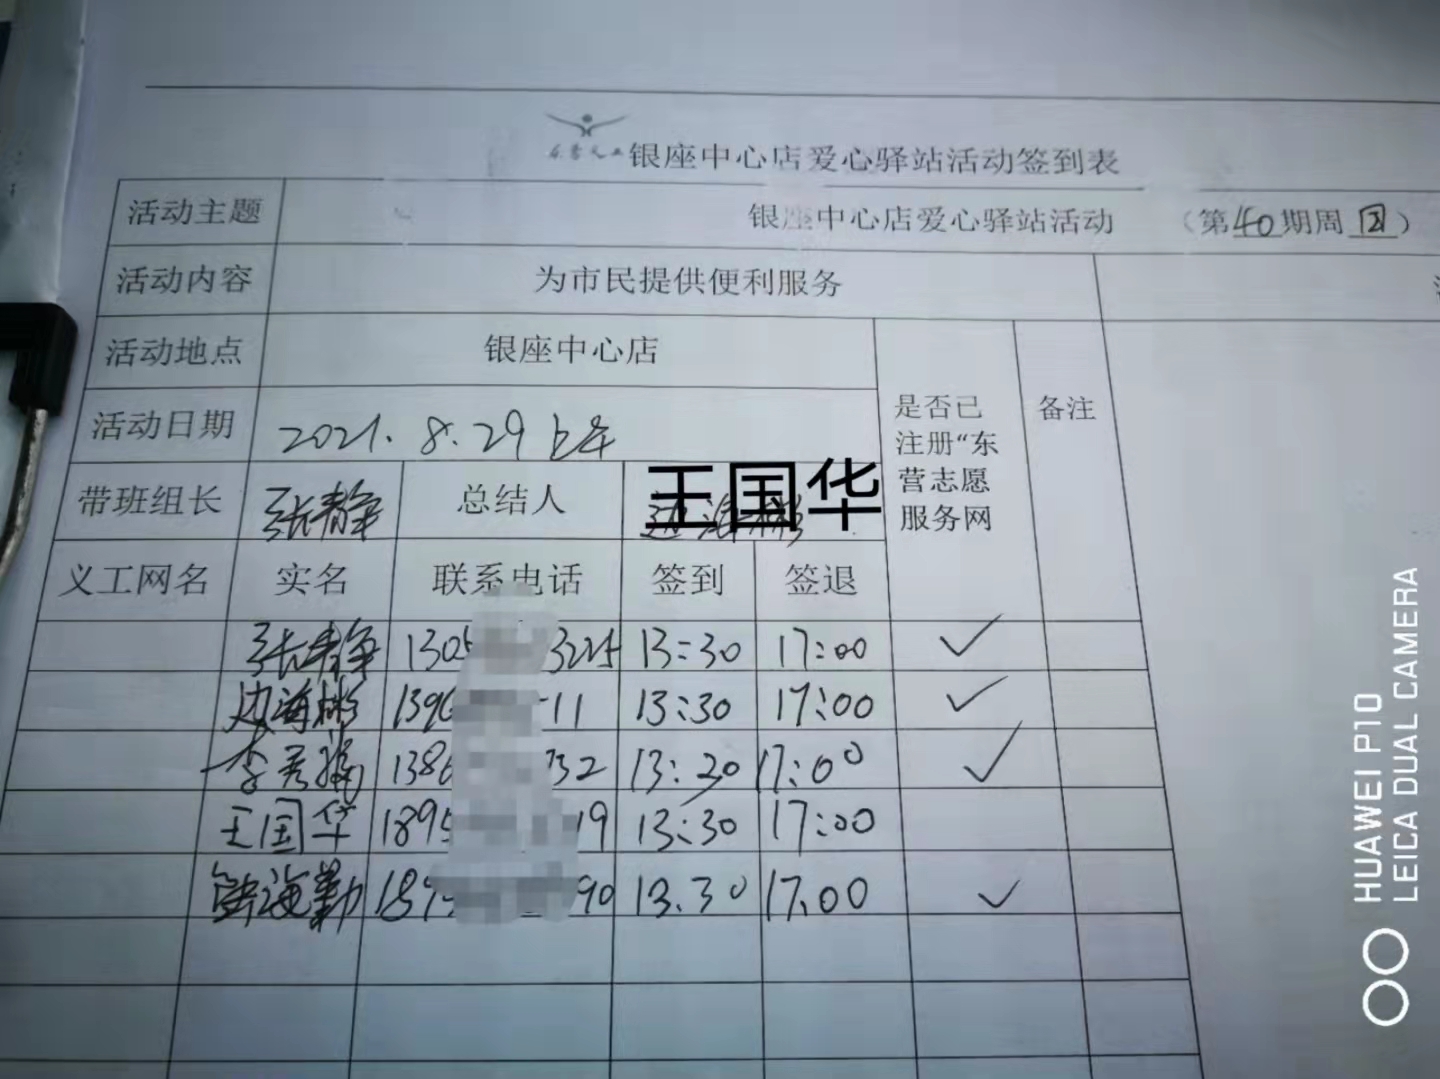 东营义工
银座中心店爱心驿站活动签到表
活动主题 银座中心店爱心驿站活动 （第40期周四）
活动内容 为市民提供便利服务
活动地点 银座中心店
活动日期 2021.8.29
是否已注册“东营志愿服务网 备注
带班组长 张静 总结人 王国华
义工网名 实名 联系电话 签到 签退
张静 130 3225 13:30 17:00 ✓
边海彬 139 11 13:30 17:00 ✓
李 138 32 13:30 17:00 ✓
王国华 1895 19 13:30 17:00
海勤 189 90 13.30 17.00 ✓
HUAWEI P10
LEICA DUAL CAMERA